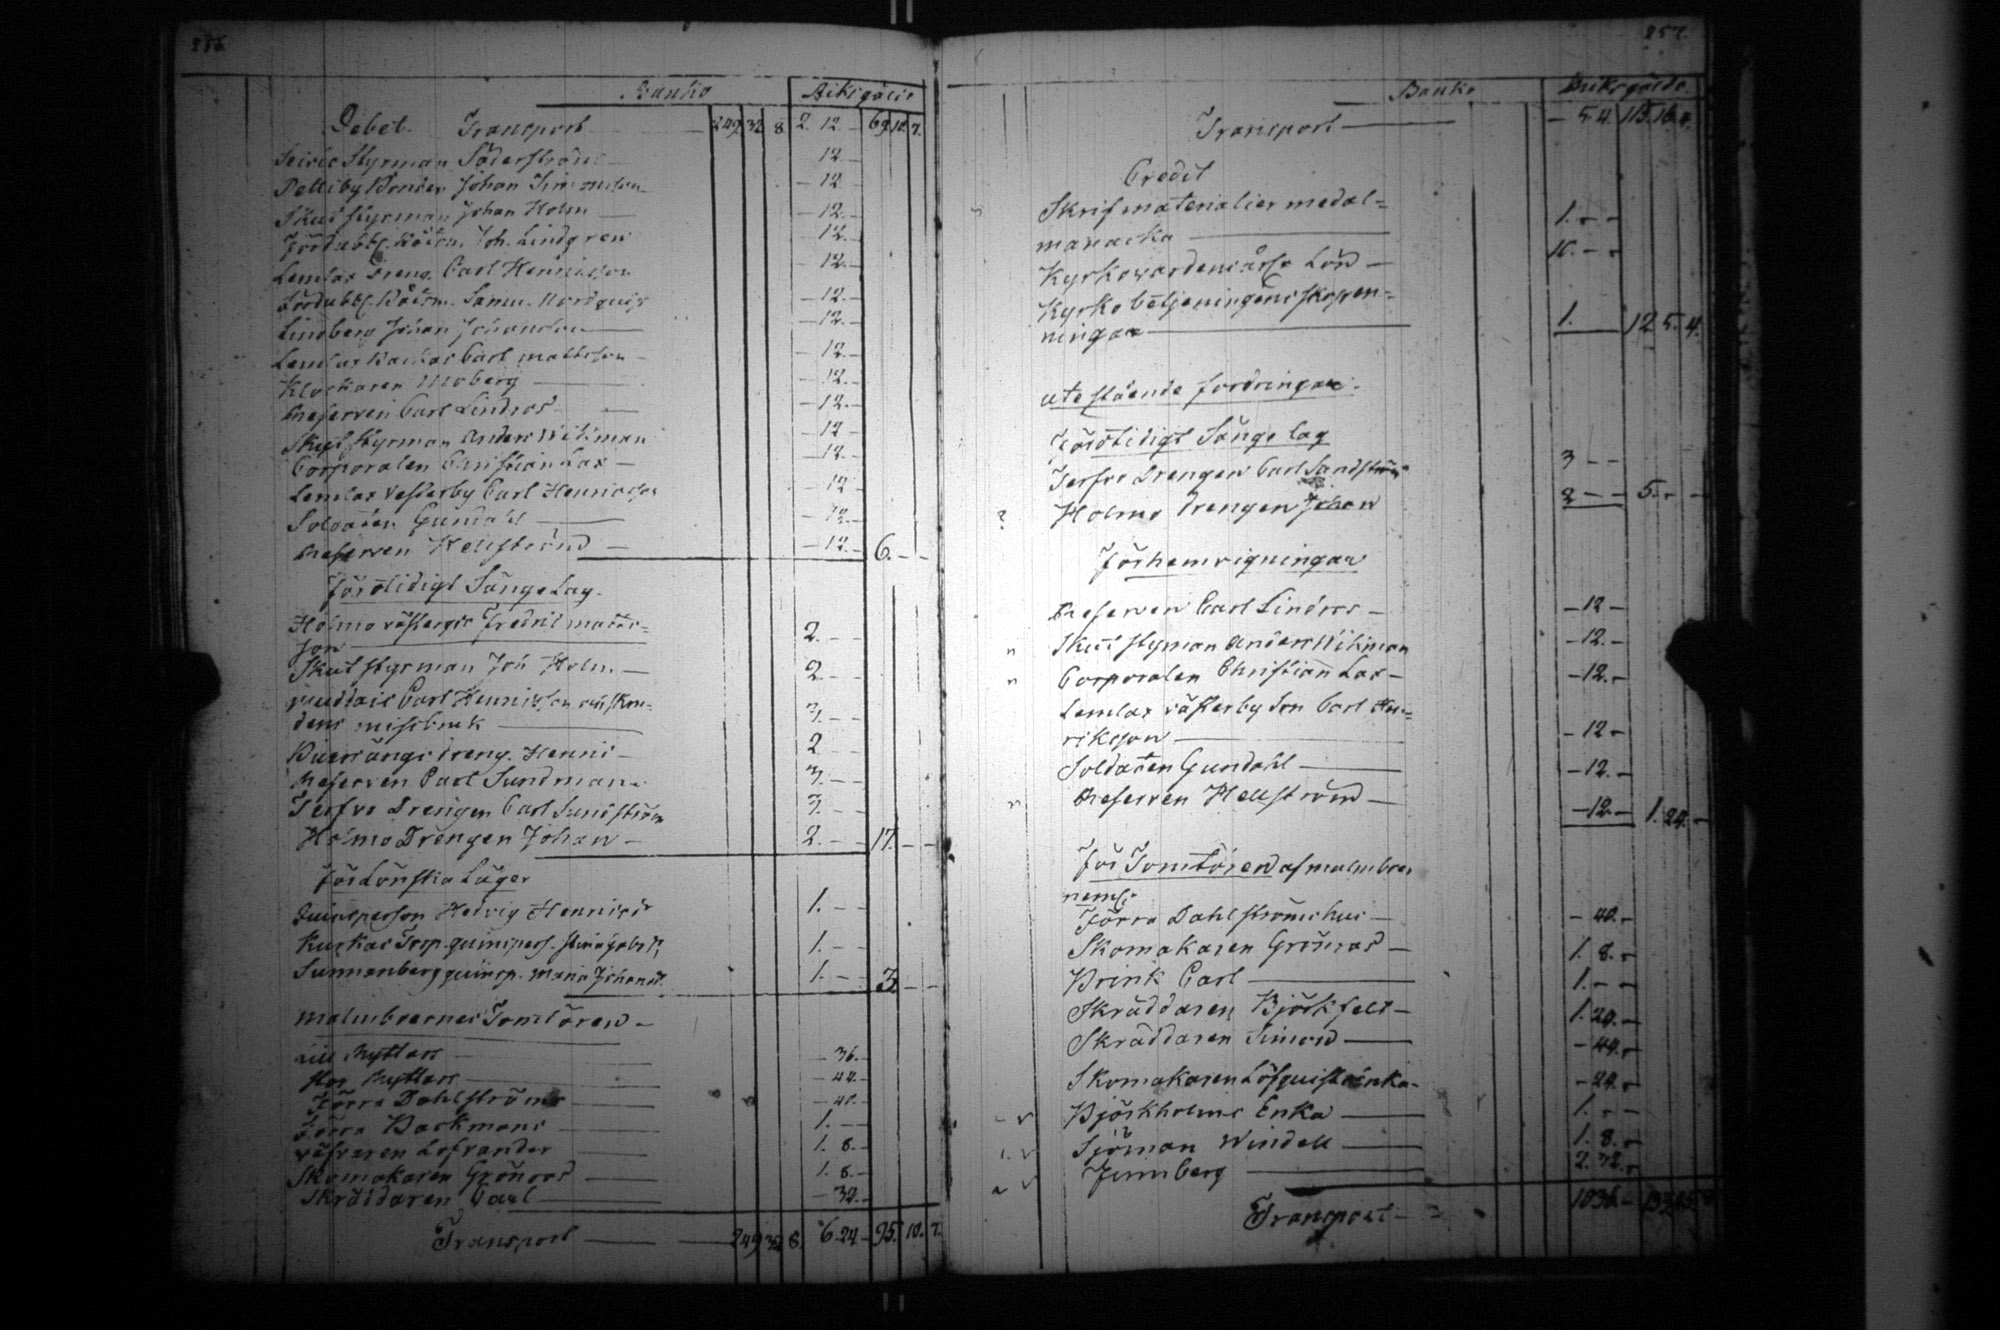 256.
Banko Riksgälds
Debet. Transport 249 32 8 2. 12. 69. 10. 7.
Styrman Söderström 12.
Pettiby Bonden Johan Simonsson 12.
Skut Styrman Johan Holm 12.
Båtsm. Joh. Lindgren 12.
Lemlax Dreng. Carl Henricsson 12.
Båtsm. Samu. Nordquist 12.
Lindberg Johan Johansson 12.
Lemlax Backas Carl Mattsson 12.
Klockaren Moberg 12.
Reserven Carl Lindros 12.
Skut Styrman Anders Wikman 12
Corporalen Christian Lax 12.
Lemlax Vesterby Carl Henricsson 12
Soldaten Gundahl 12.
Reserven Hellström 12. 6.
för otidigt Sänge Lag.
Holmo västergs Fredric matts=
son 2.
Skut Styrman Joh Holm 2.
Carl Henricsson
dens missbruk 3.
dreng. Henric 2
Reserven Carl Sundman 3.
Terfvo Drengen Carl Sundström 3.
Holmo Drengen Johan 2. 17.
för Lönska Läger
Quinsperson Hedvig Henricsdr 1.
Kuskas Torp. quinspers. Stina Jabsdr 1.
Sunnanberg quinsp. Maria Johansdr 1. 3.
Malmboernes Tomtören
Lill Nyttars 36.
Stor Nyttars 44.
Förra Dahlströms 40.
Förra Backmans 1.
Väfvaren Löfrander 1. 8.
Skomakaren Grönros 1. 8.
Skräddaren Carl 32.
Transport 249 32 8. 6 24 95. 10. 7.
257.
Banko Riksgälds
Transport 5. 4. 115. 16. 4.
Credit
Skrifmaterialier med al=
manacka 1.
Kyrkowardens årso Lön 10.
Kyrko betjeningens skospen=
ningar 1. 12. 5. 4.
utestående fordringar.
För otidigt Sänge lag
Terfvo Drengen Carl Sandström 3
Holmo Drengen Johan 2 5.
för hemvigningar
Reserven Carl Lindros 12
Skut Styrman Anders Wikman 12.
Corporalen Christian Lax 12.
Lemlax västerby Son Carl Hen=
riksson 12
Soldaten Gundahl 12.
Reserven Hellström 12. 1. 24.
för Tomtören af malmboer
neml:
Förra Dahlströms hus 40.
Skomakaren Grönros 1. 8.
Brink Carl 1.
Skräddaren Björkfelt 1. 24.
Skräddaren Simon 44.
Skomakaren Löfquists enka 24.
Björkholms Enka 1.
Sjöman Windell 1. 8.
Finnberg 2. 32.
Transport 10 36.